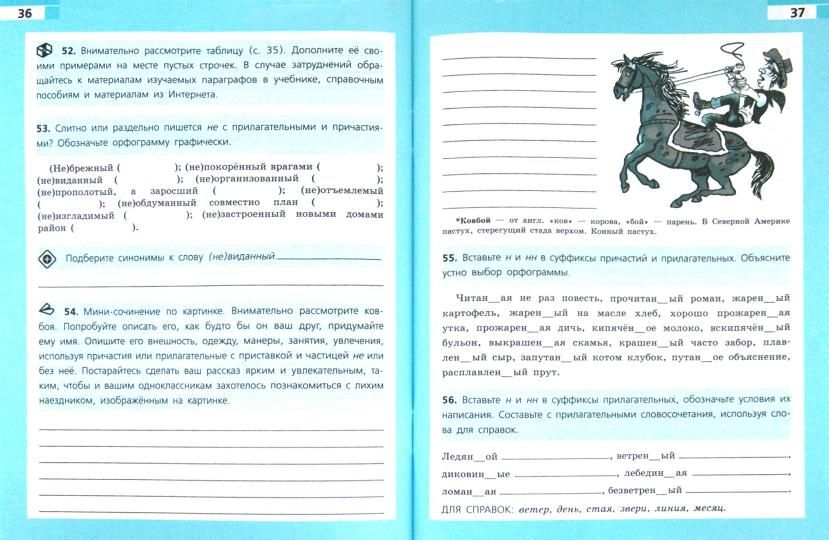 36
52. Внимательно рассмотрите таблицу (с. 35). Дополните её сво-
ими примерами на месте пустых строчек. В случае затруднений обра-
щайтесь к материалам изучаемых параграфов в учебнике, справочным
пособиям и материалам из Интернета.
53. Слитно или раздельно пишется не с прилагательными и причастия-
ми? Обозначьте орфограмму графически.
(Не)брежный ( ); (не)покорённый врагами ( );
(не)виданный ( ); (не)организованный ( );
(не)прополотый, а заросший ( ); (не)отъемлемый
( ); (не)обдуманный совместно план ( );
(не)изгладимый ( ); (не)застроенный новыми домами
район ( ).
Подберите синонимы к слову (не)виданный
54. Мини-сочинение по картинке. Внимательно рассмотрите ков-
боя. Попробуйте описать его, как будто бы он ваш друг, придумайте
ему имя. Опишите его внешность, одежду, манеры, занятия, увлечения,
используя причастия или прилагательные с приставкой и частицей не или
без неё. Постарайтесь сделать ваш рассказ ярким и увлекательным, та-
ким, чтобы и вашим одноклассникам захотелось познакомиться с лихим
наездником, изображённым на картинке.
37
*Ковбой — от англ. «ков» — корова, «бой» — парень. В Северной Америке
пастух, стерегущий стада верхом. Конный пастух.
55. Вставьте н и нн в суффиксы причастий и прилагательных. Объясните
устно выбор орфограммы.
Читан__ая не раз повесть, прочитан__ый роман, жарен__ый
картофель, жарен__ый на масле хлеб, хорошо прожарен__ая
утка, прожарен__ая дичь, кипячён__ое молоко, вскипячён__ый
бульон, выкрашен__ая скамья, крашен__ый часто забор, плав-
лен__ый сыр, запутан__ый котом клубок, путан__ое объяснение,
расплавлен__ый прут.
56. Вставьте н и нн в суффиксы прилагательных, обозначьте условия их
написания. Составьте с прилагательными словосочетания, используя сло-
ва для справок.
Ледян__ой ____________, ветрен__ый ____________,
диковин__ые ____________, лебедин__ая ____________,
ломан__ая ____________, безветрен__ый ____________.
ДЛЯ СПРАВОК: ветер, день, стая, звери, линия, месяц.